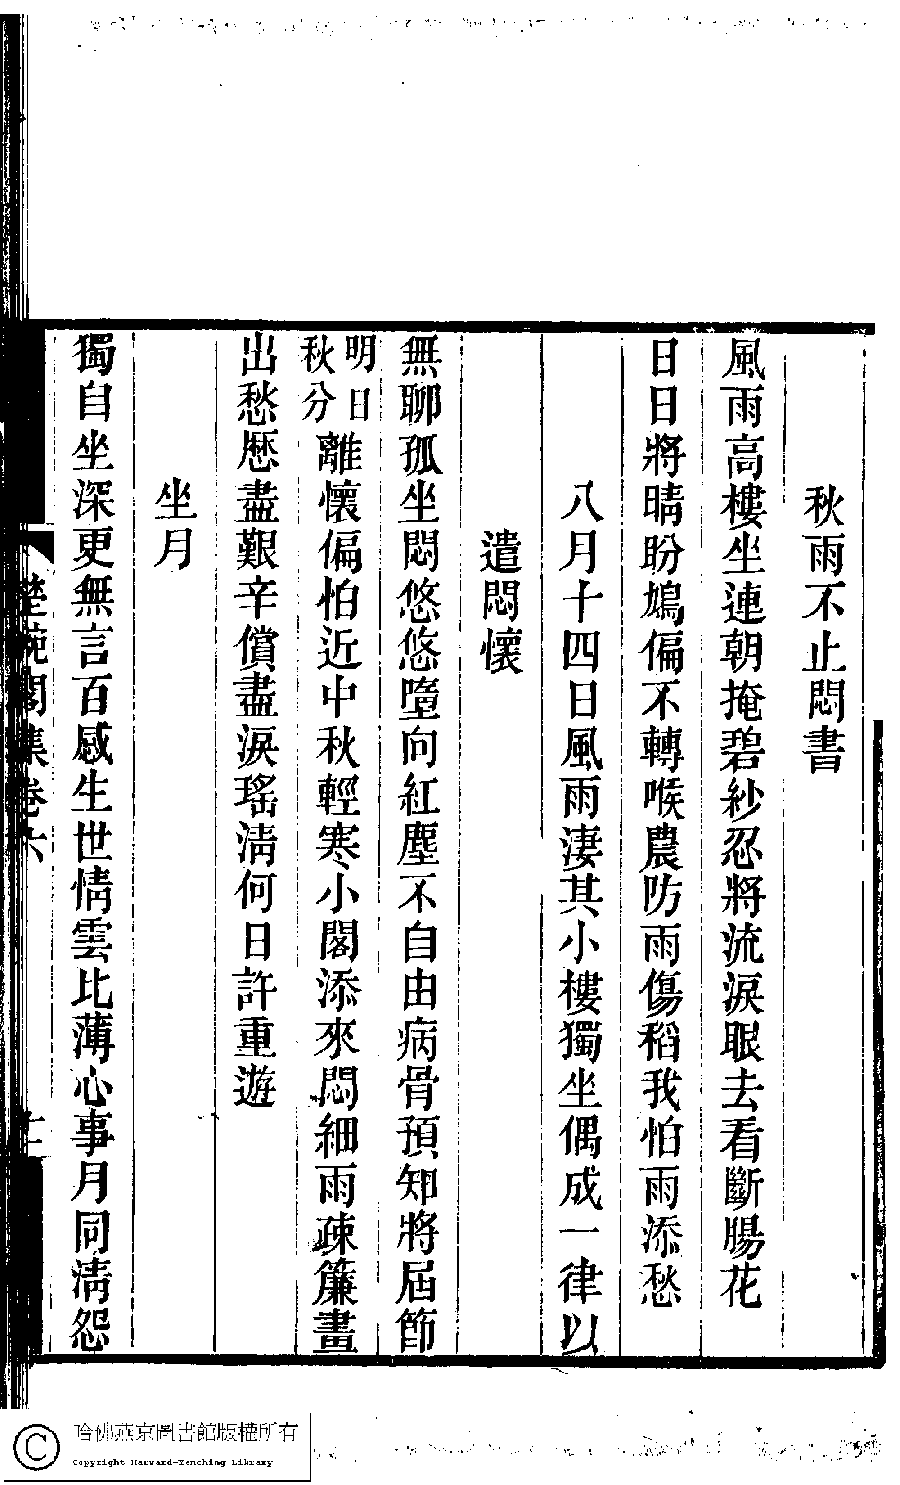 秋雨不止悶書
風雨高樓坐連朝掩碧紗忍將流淚眼去看斷腸花
日日將晴盼鳩偏不轉喉農防雨傷稻我怕雨添愁
八月十四日風雨淒其小樓獨坐偶成一律以
遣悶懷
無聊孤坐悶悠悠墮向紅塵不自由病骨預知將屆節
明日秋分離懷偏怕近中秋輕寒小閣添來悶細雨疎簾畫
出愁歷盡艱辛償盡淚瑤淸何日許重遊
坐月
獨自坐深更無言百感生世情雲比薄心事月同淸怨
楚畹閣集卷六
十一
哈佛燕京圖書館版權所有
Copyright Harvard-Yenching Library